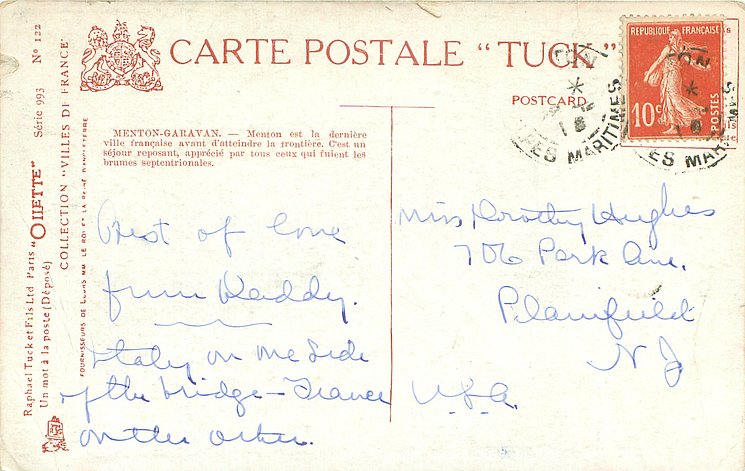 CARTE POSTALE "TUCK"
POSTCARD
RÉPUBLIQUE FRANÇAISE
10c
POSTES
TON
PES MARITIMES
MENTON-GARAVAN. — Menton est la dernière
ville française avant d'atteindre la frontière. C'est un
séjour reposant, apprécié par tous ceux qui fuient les
brumes septentrionales.
Best of love
from Daddy.
Italy on one side
of the bridge — France
on the other.
Miss Dorothy Hughes
706 Park Ave.
Plainfield
N J
U.S.A.
Raphael Tuck et Fils Ltd Paris "OILETTE" Série 993 No 122
Un mot à la poste (Déposé)
COLLECTION "VILLES DE FRANCE"
FOURNISSEURS DE LEURS MM. LE ROI ET LA REINE D'ANGLETERRE